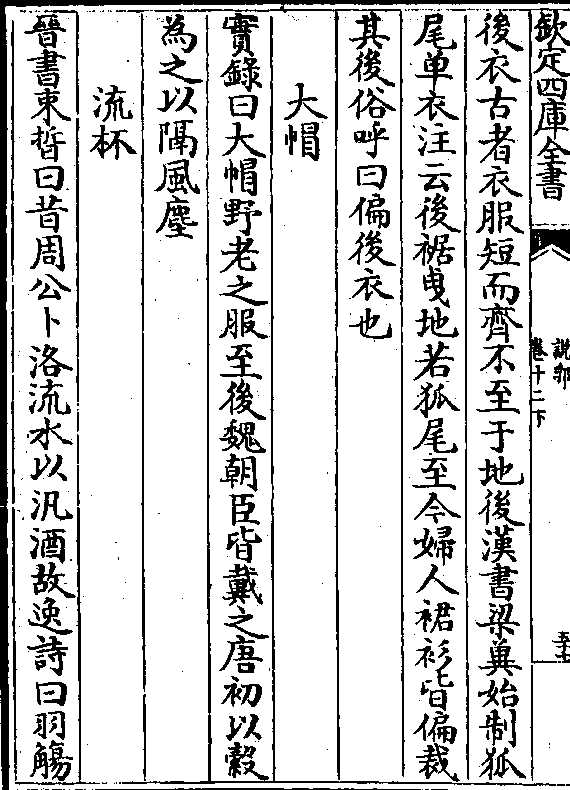 欽定四庫全書
說郛
卷十二下
後衣古者衣服短而齊不至于地後漢書梁冀始制狐
尾单衣注云後裾曳地若狐尾至今婦人裙衫皆偏裁
其後俗呼曰偏後衣也
大帽
實錄曰大帽野老之服至後魏朝臣皆戴之唐初以縠
為之以隔風塵
流杯
晉書束晳曰昔周公卜洛流水以汎酒故逸詩曰羽觴